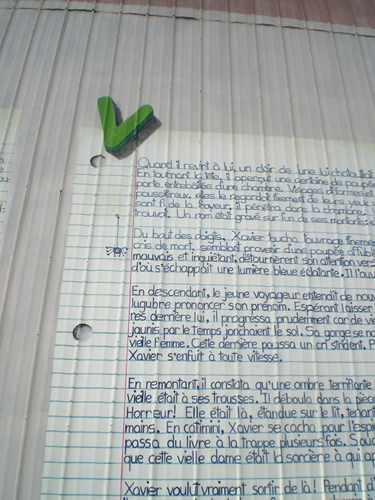 V
Quand il revint à lui, un clair de lune
En tournant la tête, il aperçut une centaine de
porte entrebâillée d'une chambre. Visages difformes et
poussiéreux, elles le regardaient fixement de leurs yeux
il pénétra dans la chambre.
trouvait. Un nom était gravé sur l'un de ses montants:
Du bout des doigts, Xavier toucha l'ouvrage finement
cris de mort, semblant provenir d'une poupée
mauvais et inquiétant, détournèrent son attention vers
d'où s'échappait une lumière bleue éclatante. Il l'ouv
En descendant, le jeune voyageur entendit de nouv
lugubre prononcer son prénom. Espérant laisser
nes derrière lui, il progressa prudemment car de vie
jaunis par le temps jonchaient le sol. Sa gorge se no
vieille femme. Cette dernière poussa un cri strident.
Xavier s'enfuit à toute vitesse.
En remontant, il constata qu'une ombre terrifiante
vieille était à ses trousses. Il déboula dans la pièce
Horreur! Elle était là, étendue sur le lit, tenant
mains. En catimini, Xavier se cacha pour l'espi
passa du livre à la trappe plusieurs fois.
que cette vieille dame était la sorcière à qui ap
Xavier voulut vraiment sortir de là! Pendant d'